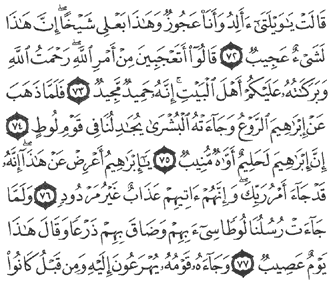 قَالَتْ يَٰوَيْلَتَىٰٓ ءَأَلِدُ وَأَنَا۠ عَجُوزٌ وَهَٰذَا بَعْلِى شَيْخًا ۖ إِنَّ هَٰذَا
لَشَىْءٌ عَجِيبٌ ٧٢ قَالُوٓا۟ أَتَعْجَبِينَ مِنْ أَمْرِ ٱللَّهِ ۖ رَحْمَتُ ٱللَّهِ
وَبَرَكَٰتُهُۥ عَلَيْكُمْ أَهْلَ ٱلْبَيْتِ ۚ إِنَّهُۥ حَمِيدٌ مَّجِيدٌ ٧٣ فَلَمَّا ذَهَبَ
عَنْ إِبْرَٰهِيمَ ٱلرَّوْعُ وَجَآءَتْهُ ٱلْبُشْرَىٰ يُجَٰدِلُنَا فِى قَوْمِ لُوطٍ ٧٤
إِنَّ إِبْرَٰهِيمَ لَحَلِيمٌ أَوَّٰهٌ مُّنِيبٌ ٧٥ يَٰٓإِبْرَٰهِيمُ أَعْرِضْ عَنْ هَٰذَآ ۖ إِنَّهُۥ
قَدْ جَآءَ أَمْرُ رَبِّكَ ۖ وَإِنَّهُمْ ءَاتِيهِمْ عَذَابٌ غَيْرُ مَرْدُودٍ ٧٦ وَلَمَّا
جَآءَتْ رُسُلُنَا لُوطًا سِىٓءَ بِهِمْ وَضَاقَ بِهِمْ ذَرْعًا وَقَالَ هَٰذَا
يَوْمٌ عَصِيبٌ ٧٧ وَجَآءَهُۥ قَوْمُهُۥ يُهْرَعُونَ إِلَيْهِ وَمِن قَبْلُ كَانُوا۟